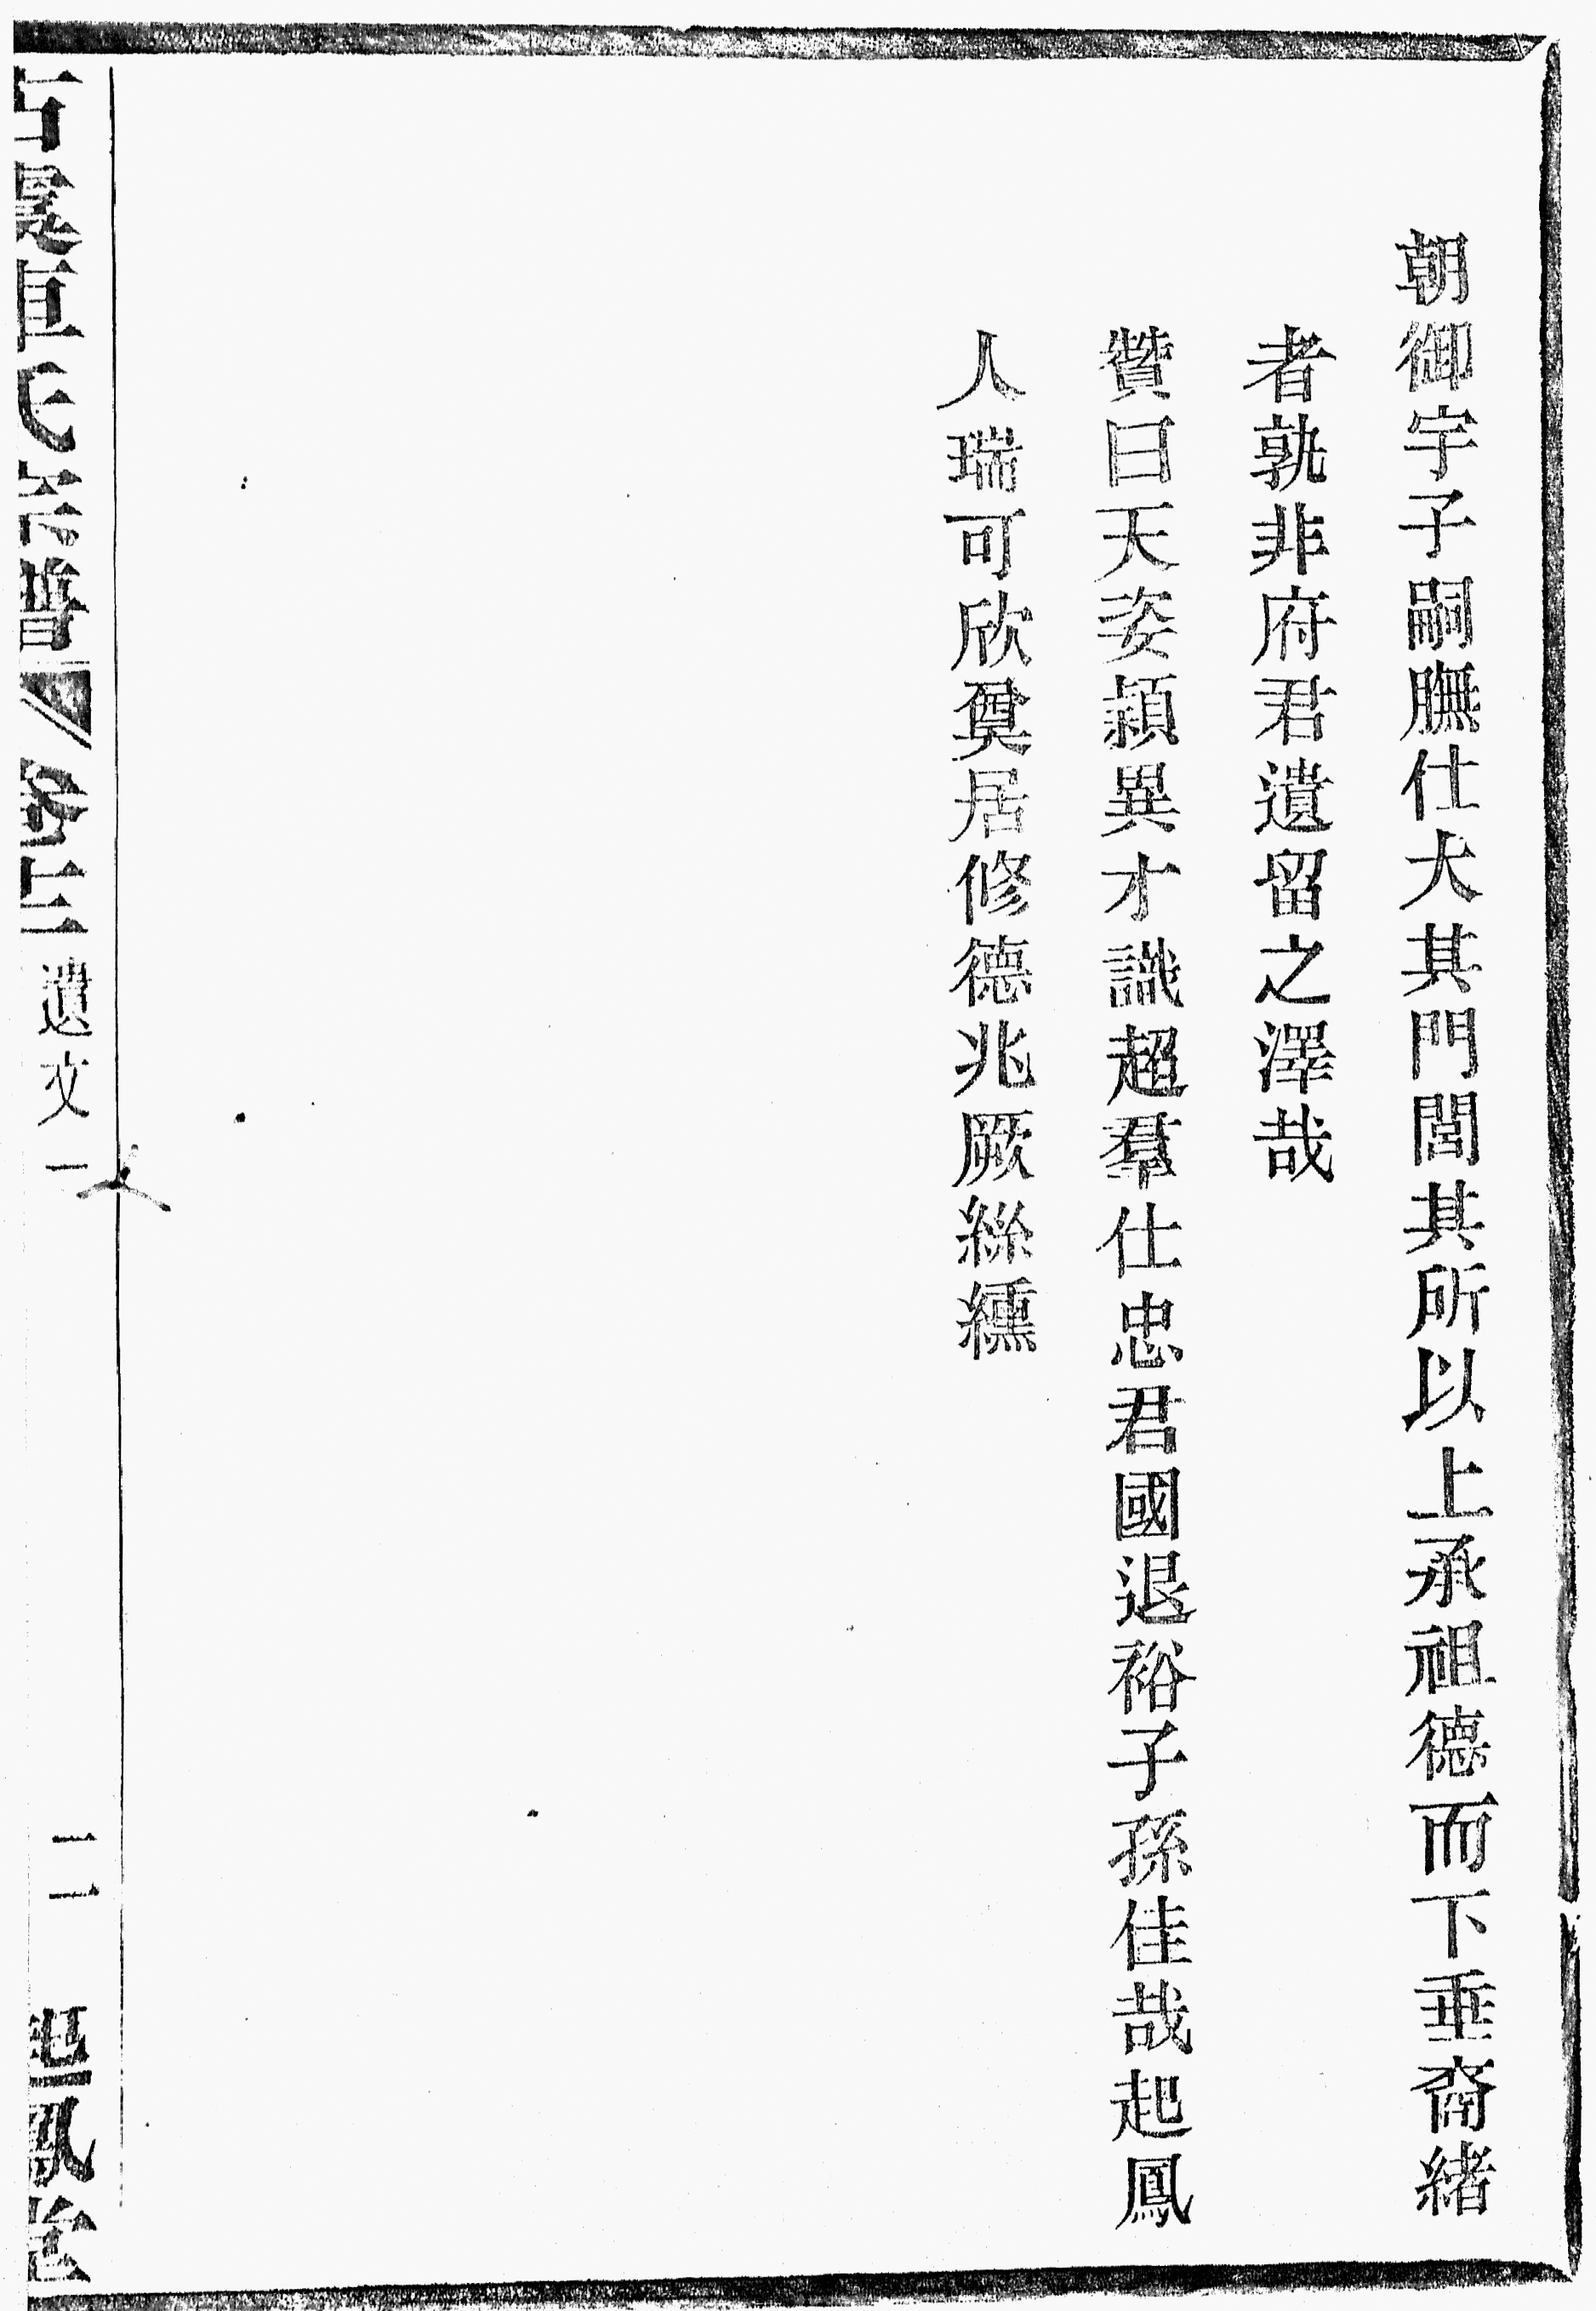 朝御宇子嗣膴仕大其門閭其所以上承祖德而下垂裔緒
者孰非府君遺留之澤哉
贊曰天姿穎異才識超羣仕忠君國退裕子孫佳哉起鳳
人瑞可欣奠居修德兆厥絲纁
古虞車氏宗譜 卷十三 遺文一 二 起鳳堂